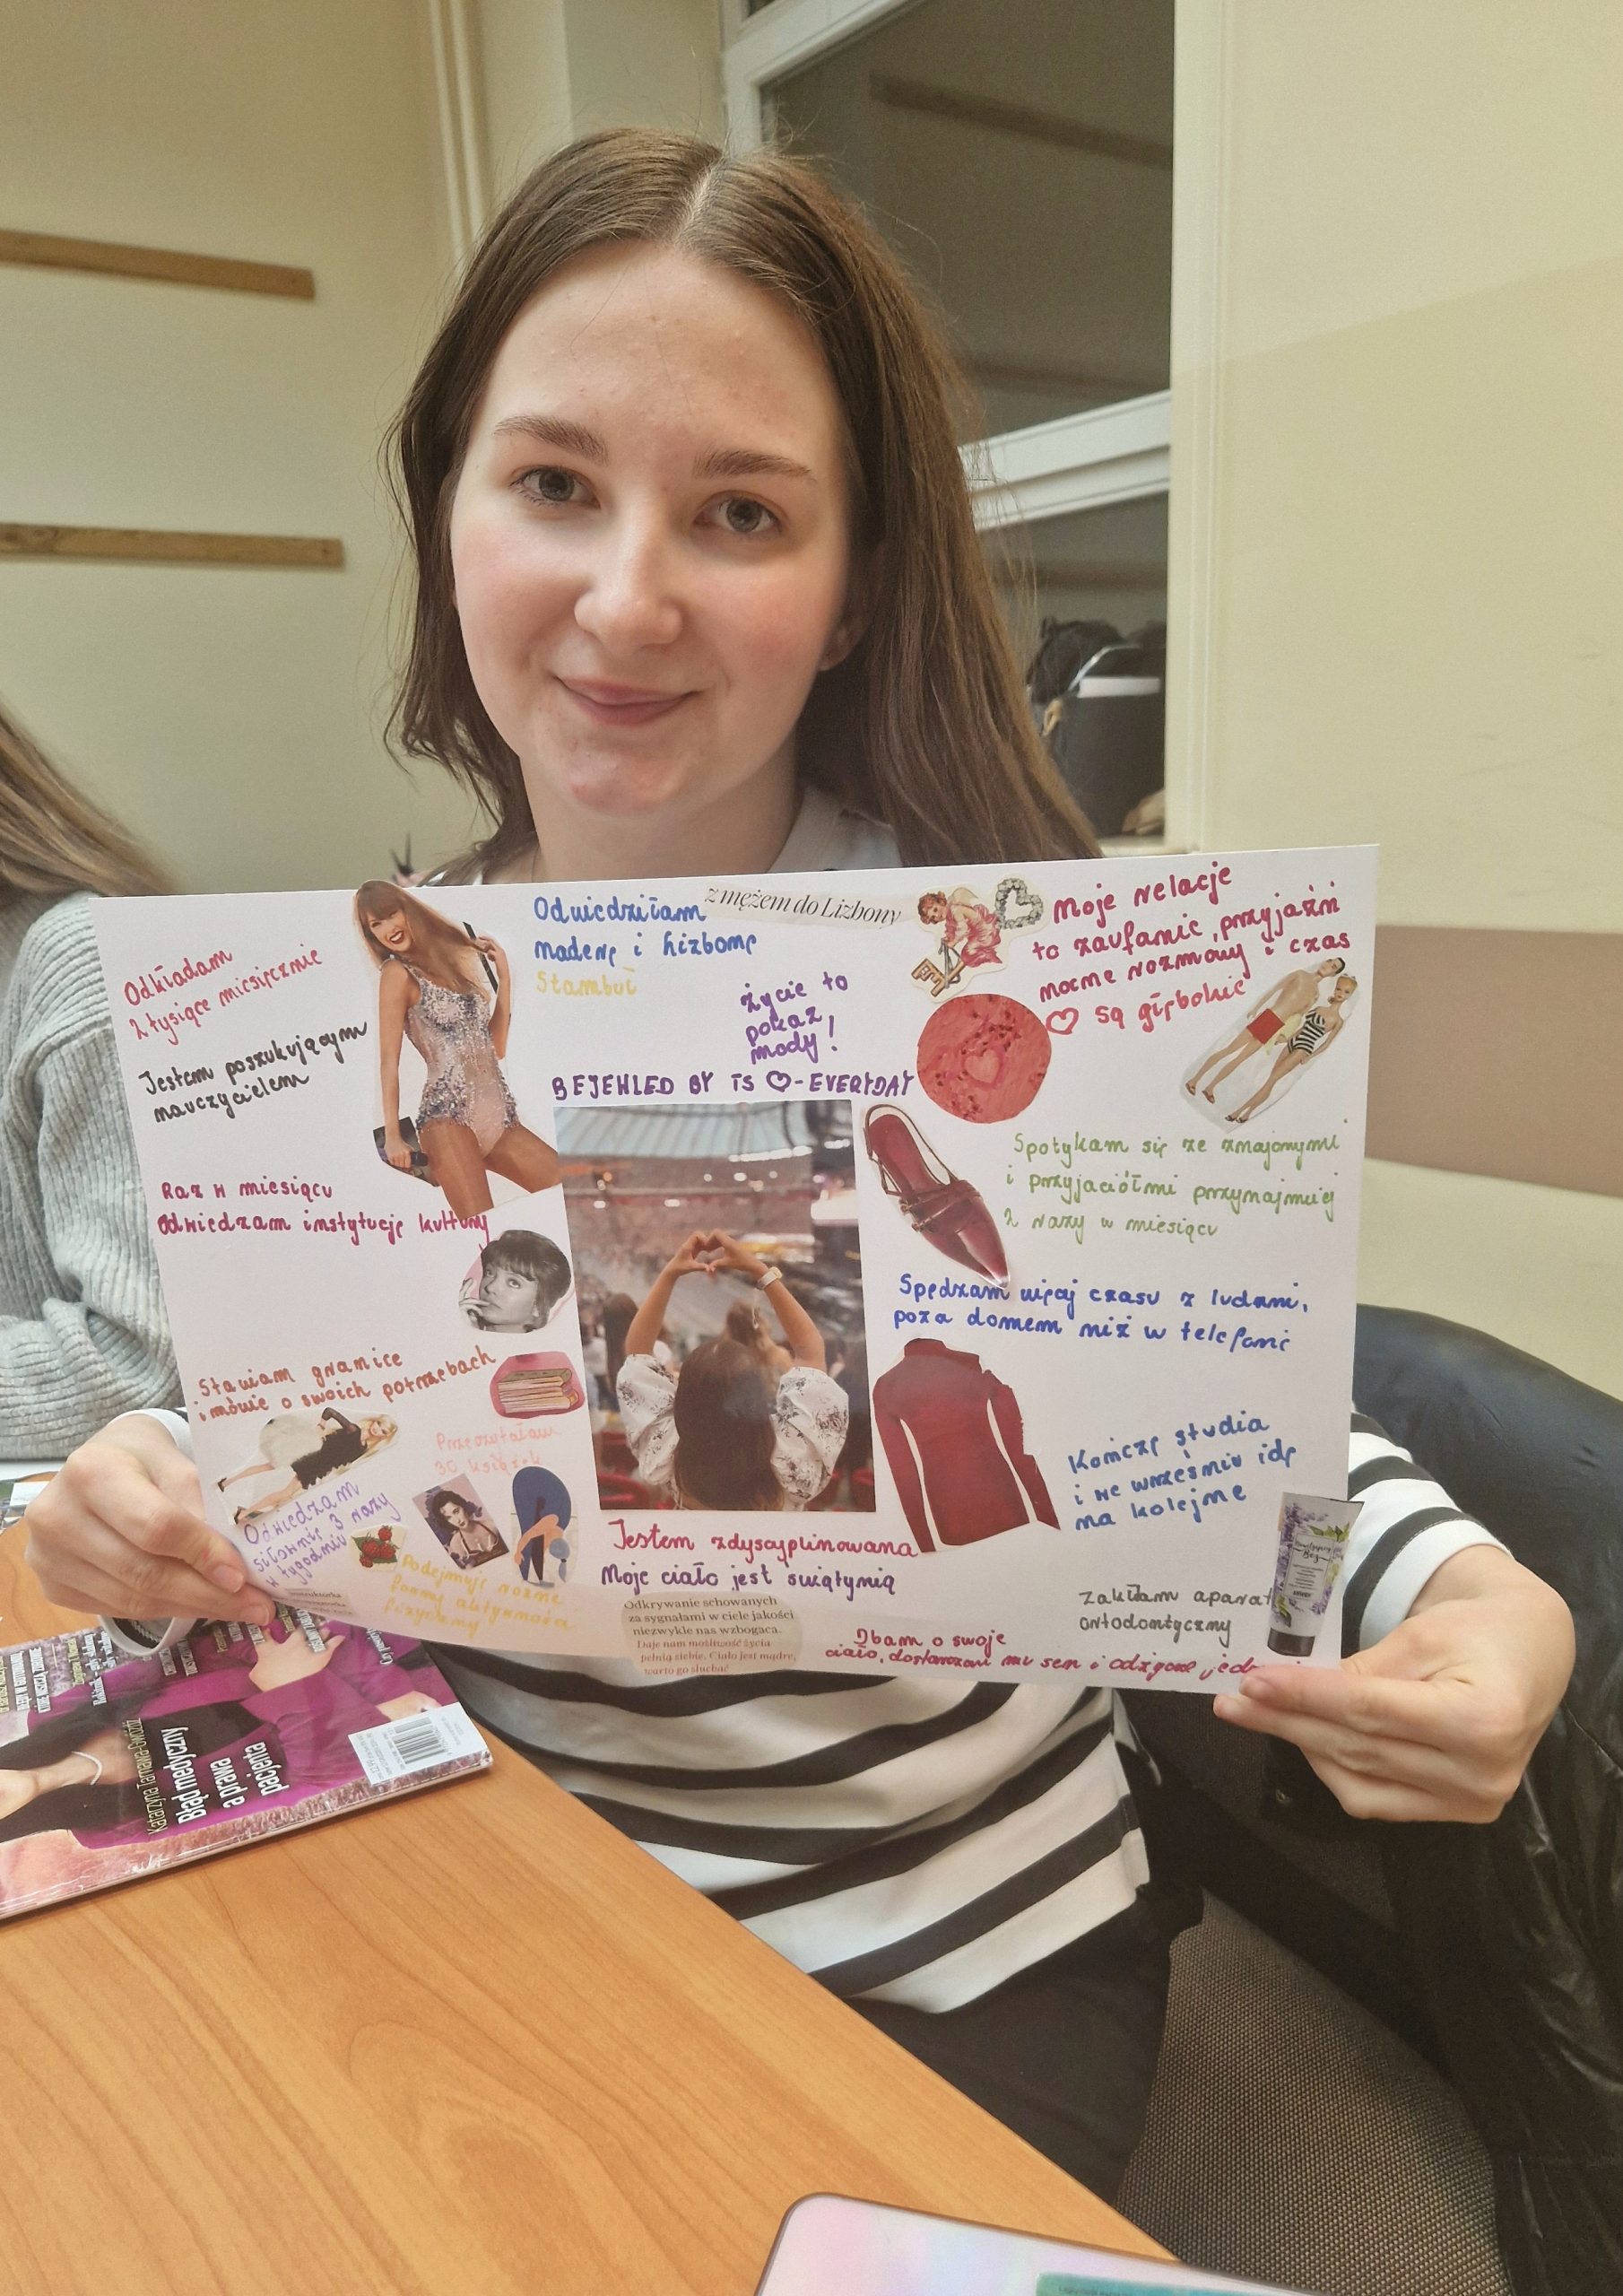 Odkładam
2 tysiące miesięcznie
Jestem poszukującym
nauczycielem
Raz w miesiącu
odwiedzam instytucję kultury
Stawiam granice
i mówię o swoich potrzebach
Odwiedzam
siłownię 3 razy
w tygodniu
Przeczytałam
30 książek
Podejmuję różne
formy aktywności
fizycznej
Odwiedziłam
z mężem do Lizbony
Maderę i Lizbonę
Stambuł
życie to
pokaz
mody!
BEJEWLED BY TS ♡-EVERYDAY
Moje relacje
to zaufanie, przyjaźń
mocne rozmowy i czas
♡ są głębokie
Spotykam się ze znajomymi
i przyjaciółmi przynajmniej
2 razy w miesiącu
Spędzam więcej czasu z ludźmi,
poza domem niż w telefonie
Kończę studia
i we wrześniu idę
na kolejne
Jestem zdyscyplinowana
Moje ciało jest świątynią
Odkrywanie schowanych
za sygnałami w ciele jakości
niezwykle nas wzbogaca.
Daje nam możliwość życia
pełnią siebie. Ciało jest mądre,
warto go słuchać
Zakładam aparat
ortodontyczny
Dbam o swoje
ciało, dostarczam mu sen i
Katarzyna
Błąd medyczny
a prawa
pacjenta